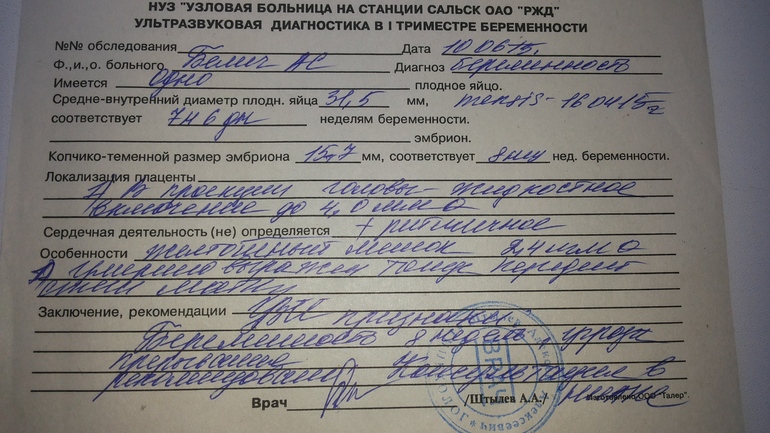 НУЗ "УЗЛОВАЯ БОЛЬНИЦА НА СТАНЦИИ САЛЬСК ОАО "РЖД"
УЛЬТРАЗВУКОВАЯ ДИАГНОСТИКА В I ТРИМЕСТРЕ БЕРЕМЕННОСТИ
№№ обследования Дата 10 06 15г.
Ф.,и.,о. больного АС Диагноз беременность
Имеется одно плодное яйцо.
Средне-внутренний диаметр плодн. яйца 31,5 мм, mensis - 16 04 15 г
соответствует 7н 6 дн неделям беременности.
эмбрион.
Копчико-теменной размер эмбриона 15,7 мм, соответствует 8 нед. беременности.
Локализация плаценты
В проекции головы - жидкостное
включение до 4,0 мм
Сердечная деятельность (не) определяется + ритмичное
Особенности желточный мешок 2,4 мм
умеренно выражен тонус
матки
Заключение, рекомендации УЗС признаки
Беременность 8 недель угроза
прерывания
рекомендована Консультация в
ВРАЧ
Врач /Штылев А.А./ Изготовлено ООО "Талер".